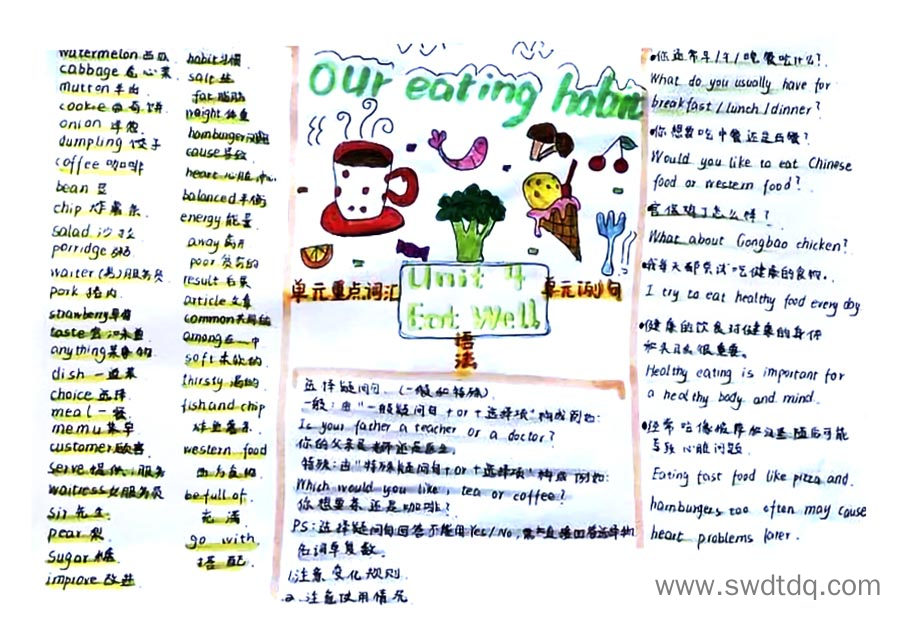 watermelon 西瓜
cabbage 卷心菜
mutton 羊肉
cookie 曲奇饼
onion 洋葱
dumpling 饺子
coffee 咖啡
bean 豆
chip 炸薯条
salad 沙拉
porridge 粥
waiter (男)服务员
pork 猪肉
strawberry 草莓
taste 尝 味道
anything 某事物
dish 一道菜
choice 选择
meal 一餐
memu 菜单
customer 顾客
serve 提供;服务
waitress 女服务员
sir 先生
pear 梨
Sugar 糖
improve 改进
habit 习惯
salt 盐
fat 脂肪
weight 体重
hamburger
cause 导致
heart 心脏,中心
balanced 平衡
energy 能量
away 离开
poor
result 后果
article 文章
common 共同的
among 在...中
soft 柔软的
thirsty 渴的
fish and chip
炸鱼薯条
western food
西方食物
be full of
充满
go with
搭配
Our eating habits
Unit 4
Eat Well
单元重点词汇
单元词句
语法
选择疑问句 (一般和特殊)
一般:由"一般疑问句+or+选择项"构成例如:
Is your father a teacher or a doctor?
你的父亲是老师还是医生
特殊:由"特殊疑问句+or+选择项"构成 例如:
Which would you like, tea or coffee?
你想要茶还是咖啡?
PS:选择疑问句回答不能用Yes/No,
名词单复数
1.注意变化规则
2.注意使用情况
你通常早/午/晚餐吃什么?
What do you usually have for
breakfast/lunch/dinner?
你想要吃中餐还是西餐?
Would you like to eat Chinese
food or western food?
宫保鸡丁怎么样?
What about Gongbao chicken?
我每天都尝试吃健康的食物。
I try to eat healthy food every day
健康的饮食对健康的身体
和头脑很重要。
Healthy eating is important for
a healthy body and mind.
经常吃像披萨和汉堡随后可能
导致心脏问题
Eating fast food like pizza and
hamburgers too often may cause
heart problems later.
www.swdtdq.com